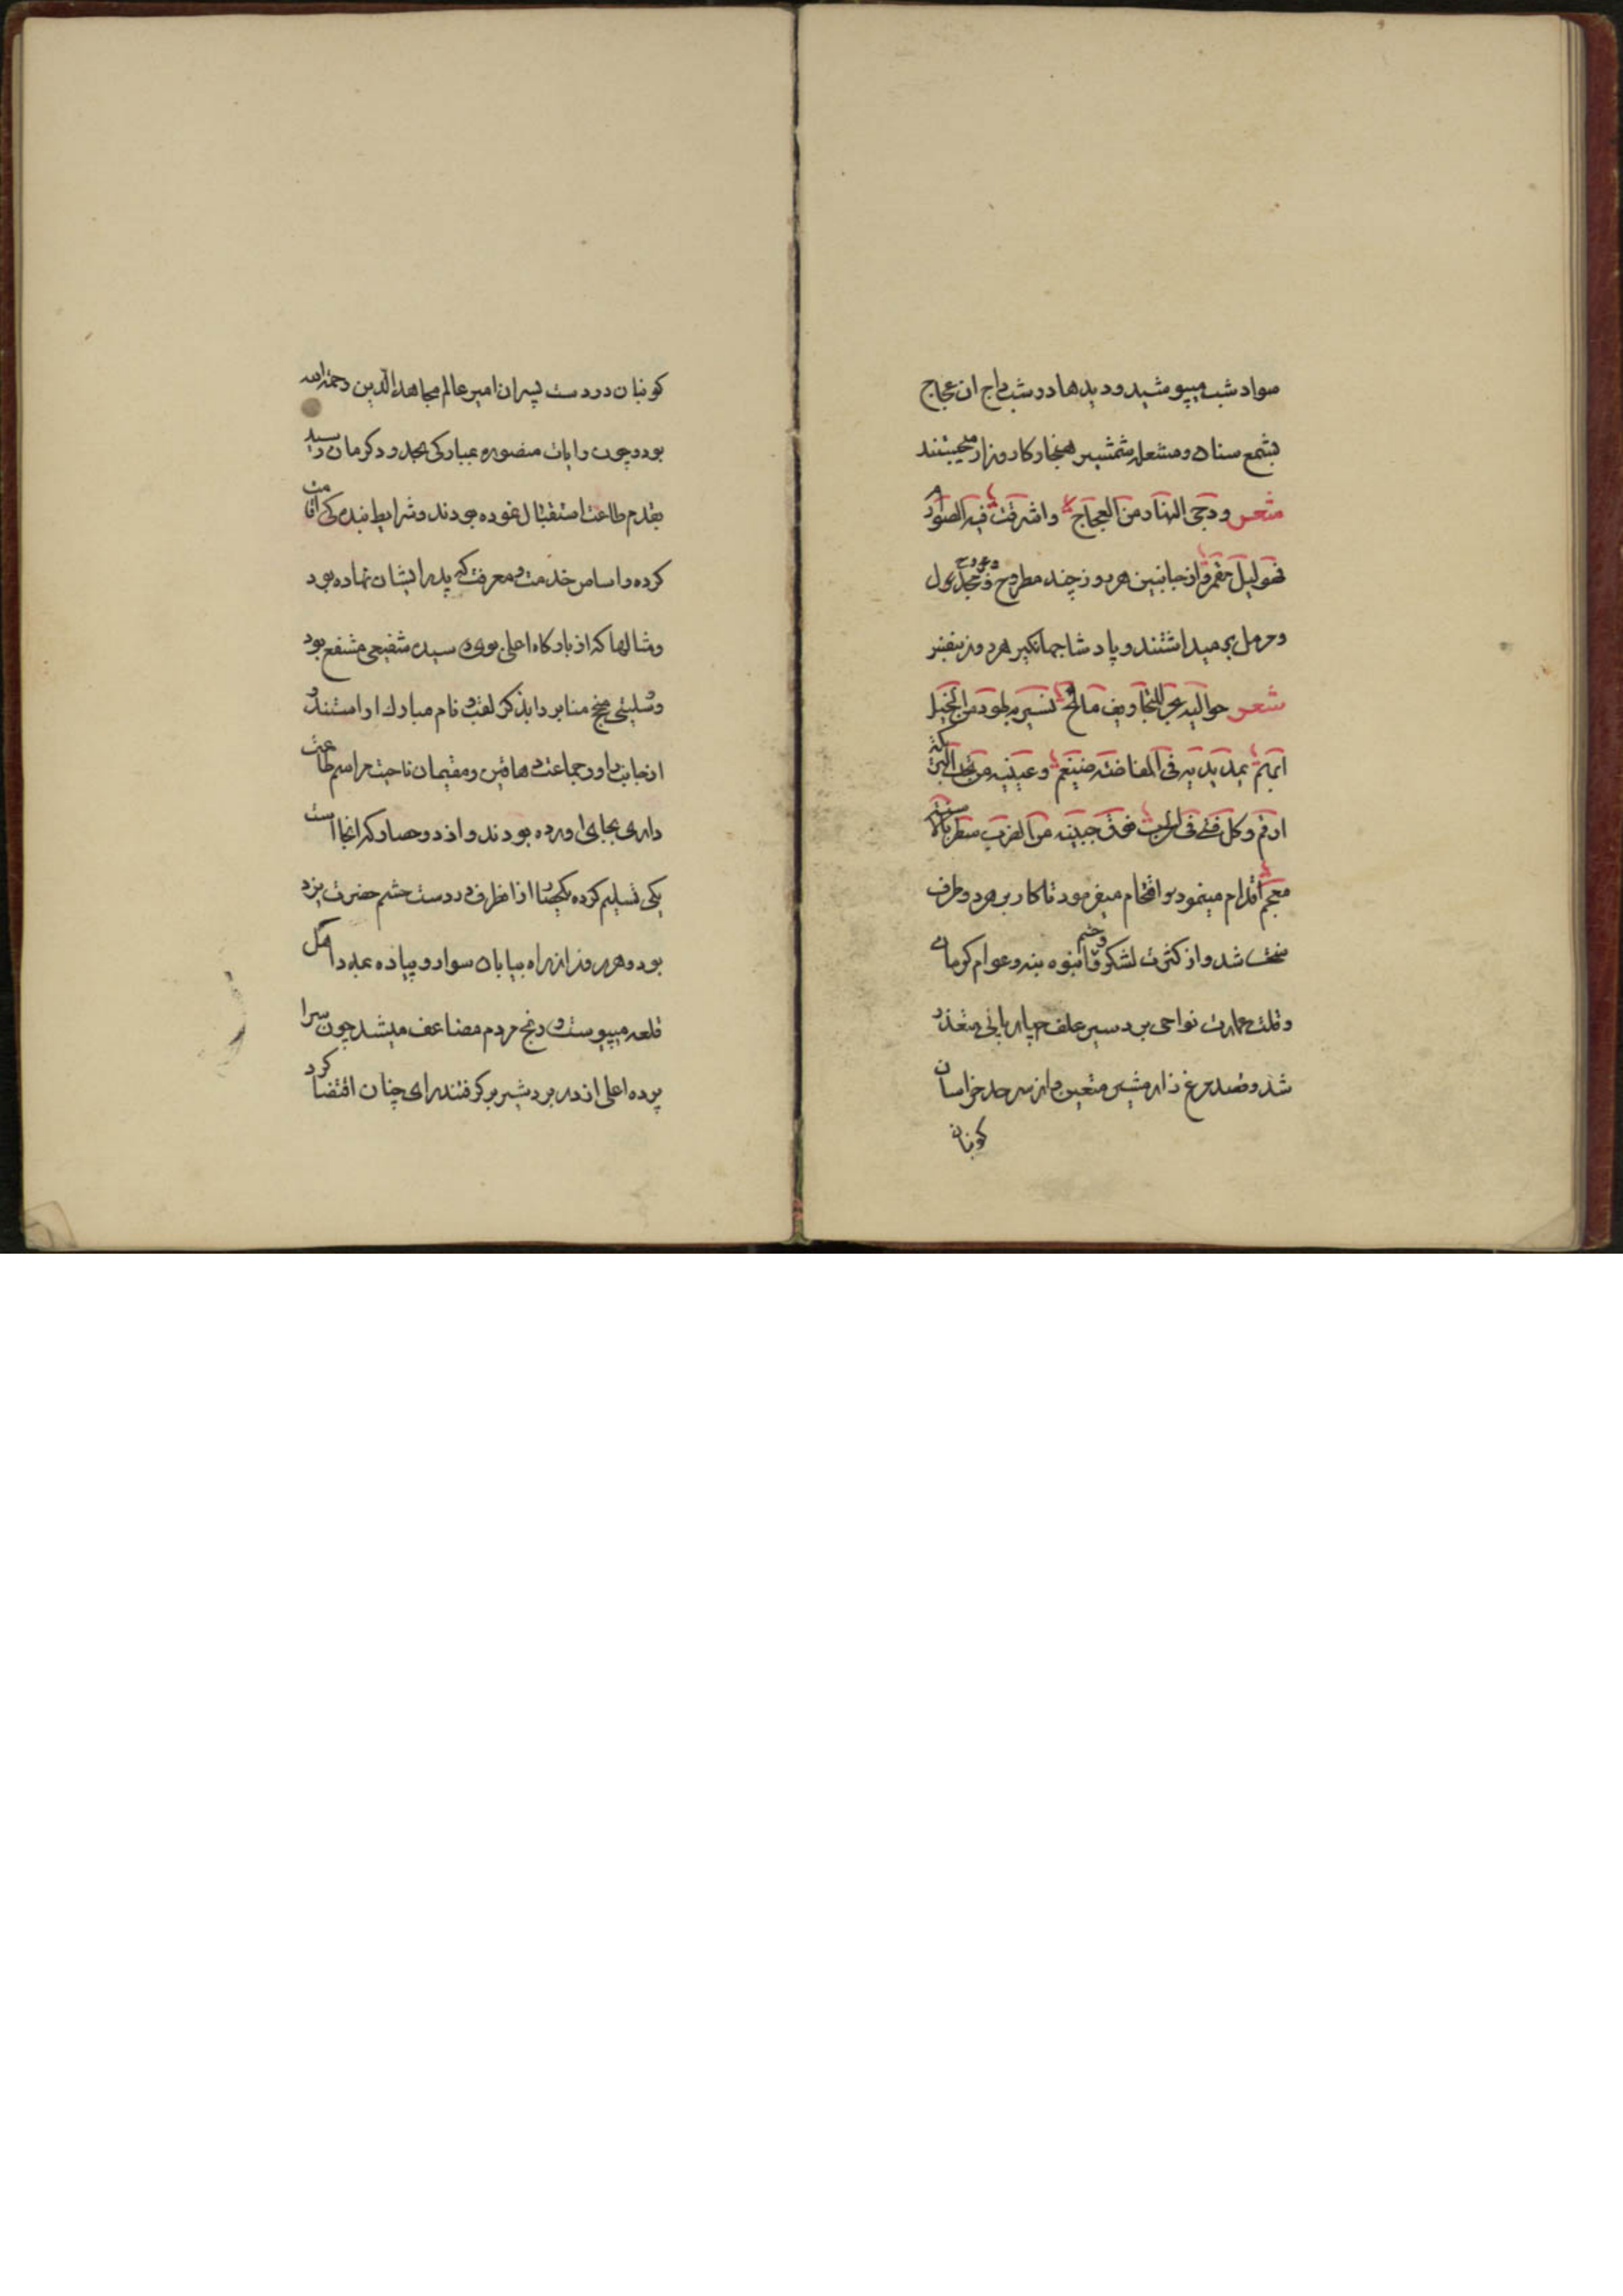 سواد شب میپوشید و دیدها در شب داج ان عجاج
بشمع سنان و مشعله شمشیر هنجار کارزار میجستند
شعر ودجی النهار من العجاج واشرقت فیه الصوارم
فهو لیل مقمر و از جانبین هر روز چند مطروح و مجروح
و مرمل بر میداشتند و پادشاه جهانگیر هر روز بنفس
شعر حوالیه بحر للتجافیف مائج تسیر به طود من الخیل
ایهم یمد یدیه فی المفاضة ضیغم و عینیه من تحت التریکة
ارقم و کل فتی فی الحرب فوق جبینه من الضرب سطر بالاسنة
معجم اقدام مینمود و اقتحام میفرمود تا کار بر هر دو طرف
سخت شد و از کثرت لشکر و حشم و انبوه بنه و عوام کرمان
و قلت عمارت نواحی بردسیر علف چهارپای متعذر
شد و قصد مرغزار مشیز متعین و از سرحد خراسان
کوبنان
کوبنان در دست پسران امیر عالم مجاهد الدین رحمة الله
بود و چون رایات منصوره بمبارکی بحدود کرمان رسید
بقدم طاعت استقبال نموده بودند و شرایط بندگی اقامت
کرده و اساس خدمت و معرفت که پدر ایشان نهاده بود
و مثالها که از بارگاه اعلی بوی رسیده شفیعی مشفع بود
و بیشتر منابر را بذکر لقب و نام مبارک اراستند و
از جانب راور جماعت دهاقین و مقیمان ناحیت مراسم طاعت
داری بجای اورده بودند و از دو حصار که انجا است
یکی تسلیم کرده یکچند از اطراف در دست حشم حضرت یزد
بود و هر روز از راه بیابان سوار و پیاده بمدد اهل
قلعه میپیوست و رنج مردم مضاعف میشد چون سرا
پرده اعلی از در بردشیر برگرفتند رای چنان اقتضا کرد